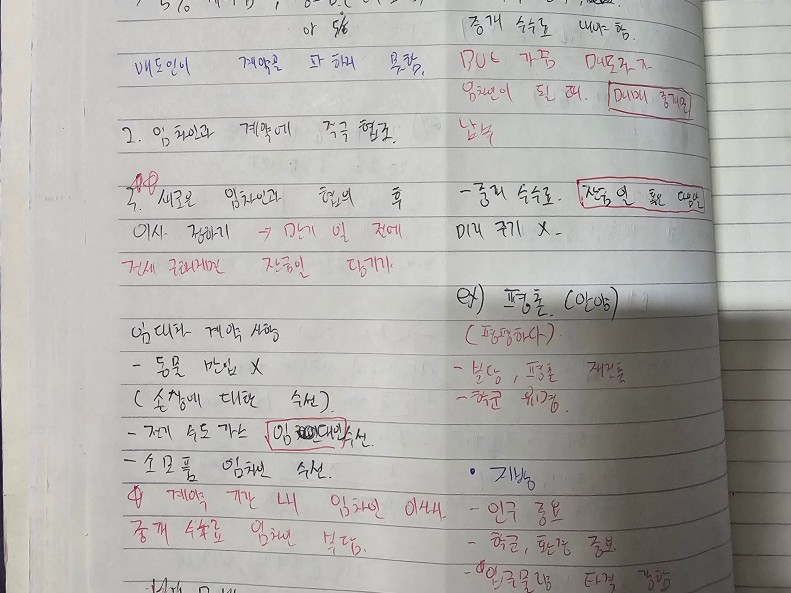 매도인이 계약을 파하지 못함.
2. 임차인과 계약에 적극 협조.
3. 새로운 임차인과 협의 후
이사 정하기 → 만기 일 전에
전세 구해지면 잔금일 당기기
임대차 계약 사항
- 동물 반입 X
(손상에 대한 수선).
- 전기 수도 가스 임대인 수선
- 소모품 임차인 수선.
계약 기간 내 임차인 이사시
중개 수수료 임차인 부담.
중개 수수료 내야 함.
But 가끔 매도자가
임차인이 된 때. 매매 중개만
납부
- 중개 수수료. 잔금일 혹은 다음날
미리 주기 X.
ex) 평촌. (안양)
(평평하다)
- 분당, 평촌 재건축
- 학군 환경.
• 지방
- 인구 중요
- 학군, 환경 중요
- 입주물량 타격 강함